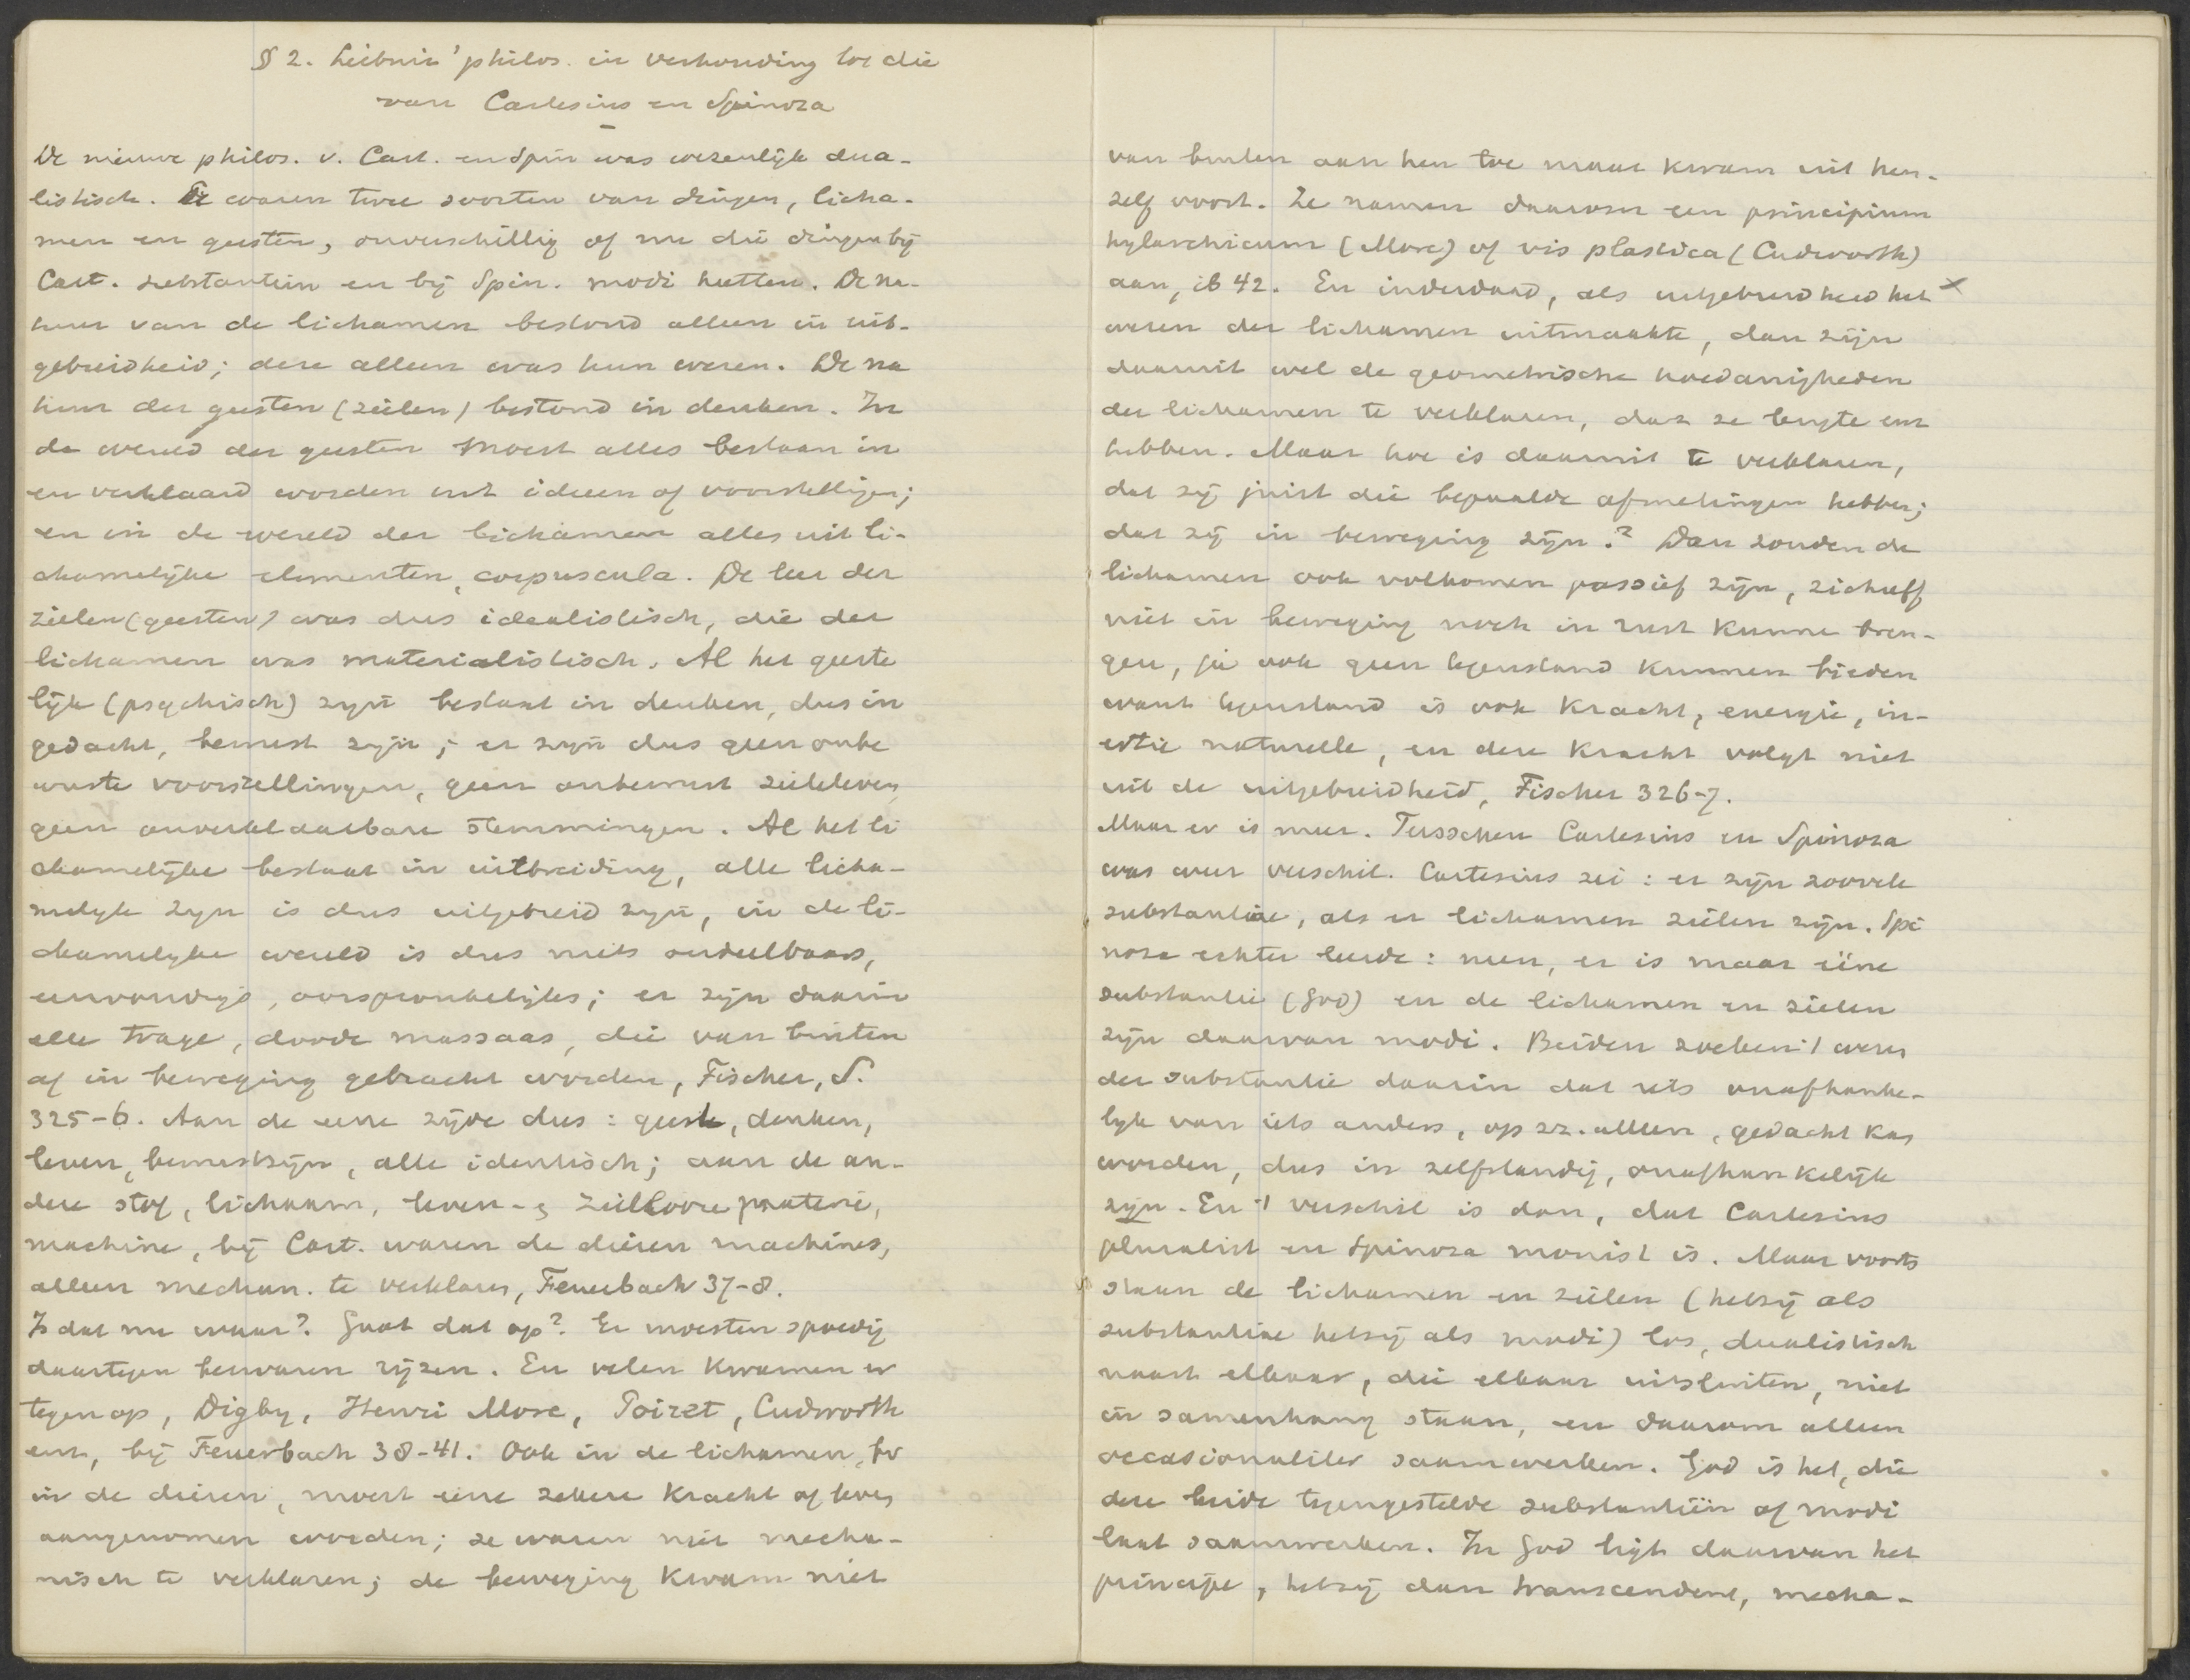 § 2. Leibniz' philos. in verhouding tot die
van Cartesius en Spinoza
De nieuwe philos. v. Cart. en Spin was wezenlijk dua-
listisch. Er waren twee soorten van dingen, licha-
men en geesten, onverschillig of nu die dingen bij
Cart. substantiën en bij Spin. modi heetten. De na-
tuur van de lichamen bestond alleen in uit-
gebreidheid; deze alleen was hun wezen. De na
tuur der geesten (zielen) bestond in denken. In
de wereld der geesten moest alles bestaan in
en verklaard worden uit ideeen of voorstellingen;
en in de wereld der lichamen alles uit li-
chamelijke elementen, corpuscula. De leer der
zielen (geesten) was dus idealistisch, die der
lichamen was materialistisch. Al het geeste
lijk (psychisch) zijn bestaat in denken, dus in
gedacht, bewust zijn; er zijn dus geen onbe
wuste voorstellingen, geen onbewust zieleleven,
geen onverklaarbare stemmingen. Al het li
chamelijke bestaat in uitbreiding, alle licha-
melyk zyn is dus uitgebreid zyn, in de li-
chamelyke wereld is dus niets ondeelbaars,
eenvoudigs, oorspronkelijks; er zijn daarin
alle trage, doode massaas, die van buiten
af in beweging gebracht worden, Fischer, S.
325-6. Aan de eene zijde dus: geest, denken,
leven, bewustzijn, alle identisch; aan de an-
dere stof, lichaam, leven- en ziellooze materie,
machine, bij Cart. waren de dieren machines,
alleen mechan. te verklaren, Feuerbach 37-8.
Is dat nu waar? Gaat dat op? Er moesten spoedig
daartegen bezwaren rijzen. En velen kwamen er
tegen op, Digby, Henri More, Poiret, Cudworth
enz, bij Feuerbach 38-41. Ook in de lichamen, bv
in de dieren, moest eene zekere kracht of leven
aangenomen worden; ze waren niet mecha-
nisch te verklaren; de beweging kwam niet
van buiten aan hen toe maar kwam uit hen-
zelf voort. Ze namen daarom een principium
hylarchicum (More) of vis plastica (Cudworth)
aan, ib 42. En inderdaad, als uitgebreidheid het x
wezen der lichamen uitmaakte, dan zijn
daaruit wel de geometrische hoedanigheden
der lichamen te verklaren, dat ze lengte enz
hebben. Maar hoe is daaruit te verklaren,
dat zij juist die bepaalde afmetingen hebben;
dat zij in beweging zijn? Dan zouden de
lichamen ook volkomen passief zijn, zichzelf
niet in beweging noch in rust kunne bren-
gen, ja ook geen tegenstand kunnen bieden
want tegenstand is ook kracht, energie, in-
ertie naturelle, en deze kracht volgt niet
uit de uitgebreidheid, Fischer 326-7.
Maar er is meer. Tusschen Cartesius en Spinoza
was weer verschil. Cartesius zei: er zijn zoovele
substantiae, als er lichamen zielen zijn. Spi
noza echter leerde: neen, er is maar ééne
substantie (God) en de lichamen en zielen
zijn daarvan modi. Beiden zoeken 't wezen
der substantie daarin dat iets onafhanke-
lyk van iets anders, op zz. alleen, gedacht kan
worden, dus in zelfstandig, onafhankelijk
zijn. En 't verschil is dan, dat Cartesius
pluralist en Spinoza monist is. Maar voorts
staan de lichamen en zielen (hetzij als
substantiae hetzij als modi) los, dualistisch
naast elkaar, die elkaar uitsluiten, niet
in samenhang staan, en daarom alleen
occasionaliter saamwerken. God is het, die
deze beide tegengestelde substantiën of modi
laat saamwerken. In God ligt daarvan het
principe, hetzij dan transcendent, mecha-